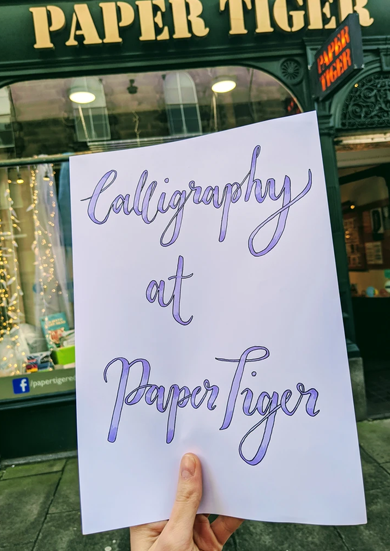 PAPER TIGER
PAPER
TIGER
Calligraphy
at
Paper Tiger
/papertigered